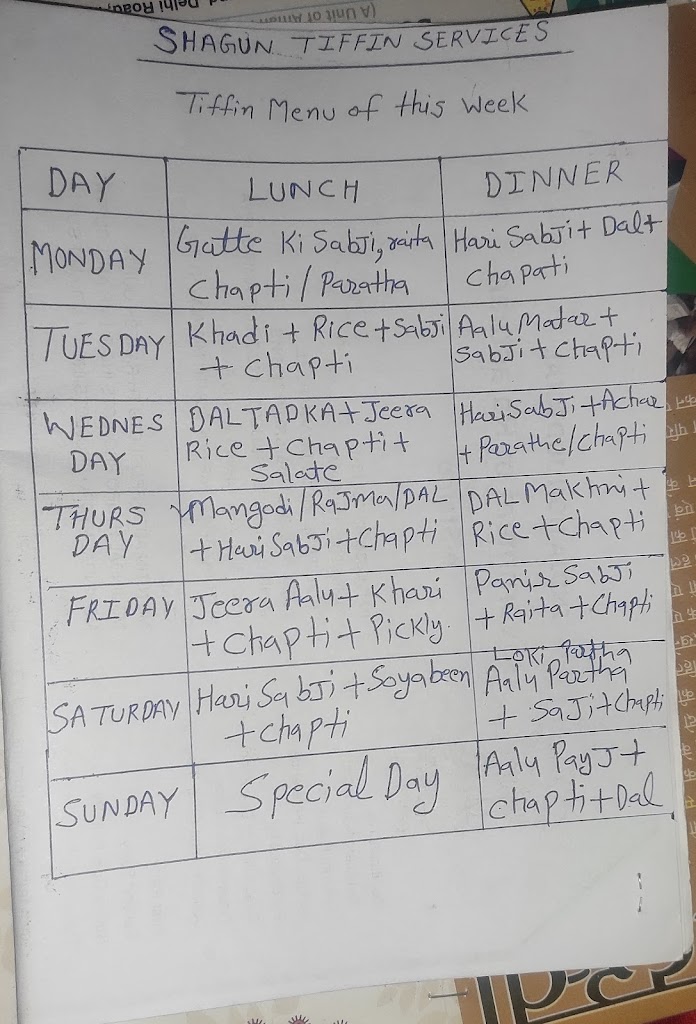 SHAGUN TIFFIN SERVICES
Tiffin Menu of this Week
DAY LUNCH DINNER
MONDAY
Gatte Ki SabJi, raita
Chapti / Paratha
Hari SabJi + Dal +
Chapati
TUESDAY
Khadi + Rice + SabJi
+ Chapti
Aalu Matar +
SabJi + Chapti
WEDNES
DAY
DAL TADKA + Jeera
Rice + Chapti +
Salate
Hari SabJi + Achar
+ Parathe/Chapti
THURS
DAY
Mangodi/RaJma/DAL
+ Hari SabJi + Chapti
DAL Makhni +
Rice + Chapti
FRIDAY
Jeera Aalu + Khari
+ Chapti + Pickly.
Panir SabJi
+ Raita + Chapti
SATURDAY
Hari SabJi + Soyabeen
+ Chapti
LOKi Partha
Aalu Partha
+ SaJi + Chapti
SUNDAY
Special Day
Aalu PayJ +
Chapti + Dal